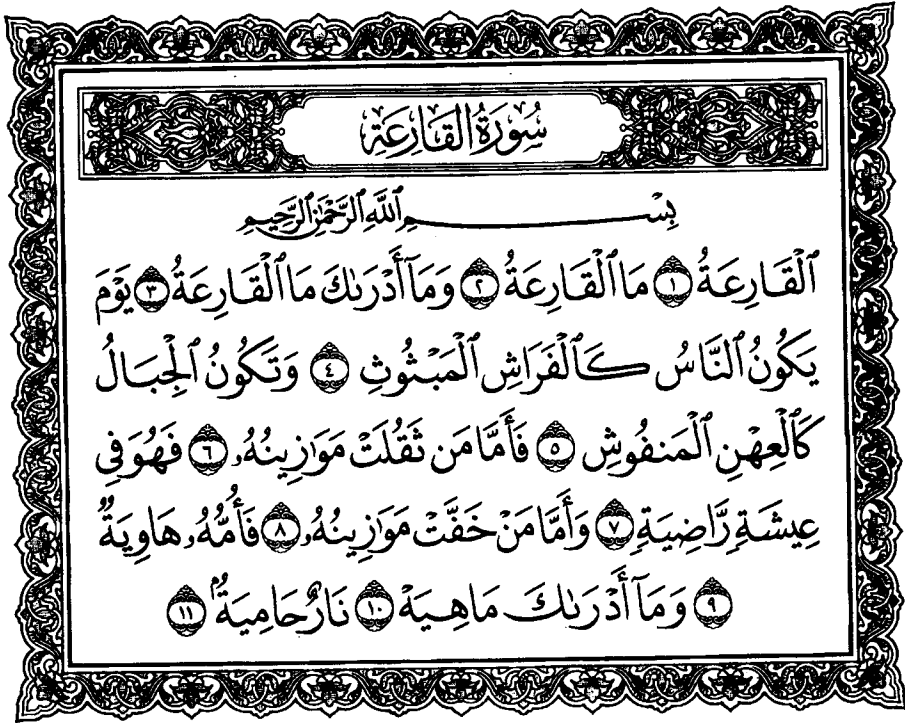 سُورَةُ القَارِعَة
بِسْمِ ٱللَّهِ ٱلرَّحْمَٰنِ ٱلرَّحِيمِ
ٱلْقَارِعَةُ ١ مَا ٱلْقَارِعَةُ ٢ وَمَآ أَدْرَىٰكَ مَا ٱلْقَارِعَةُ ٣ يَوْمَ
يَكُونُ ٱلنَّاسُ كَٱلْفَرَاشِ ٱلْمَبْثُوثِ ٤ وَتَكُونُ ٱلْجِبَالُ
كَٱلْعِهْنِ ٱلْمَنفُوشِ ٥ فَأَمَّا مَن ثَقُلَتْ مَوَٰزِينُهُۥ ٦ فَهُوَ فِى
عِيشَةٍ رَّاضِيَةٍ ٧ وَأَمَّا مَنْ خَفَّتْ مَوَٰزِينُهُۥ ٨ فَأُمُّهُۥ هَاوِيَةٌ
٩ وَمَآ أَدْرَىٰكَ مَا هِيَهْ ١٠ نَارٌ حَامِيَةٌۢ ١١